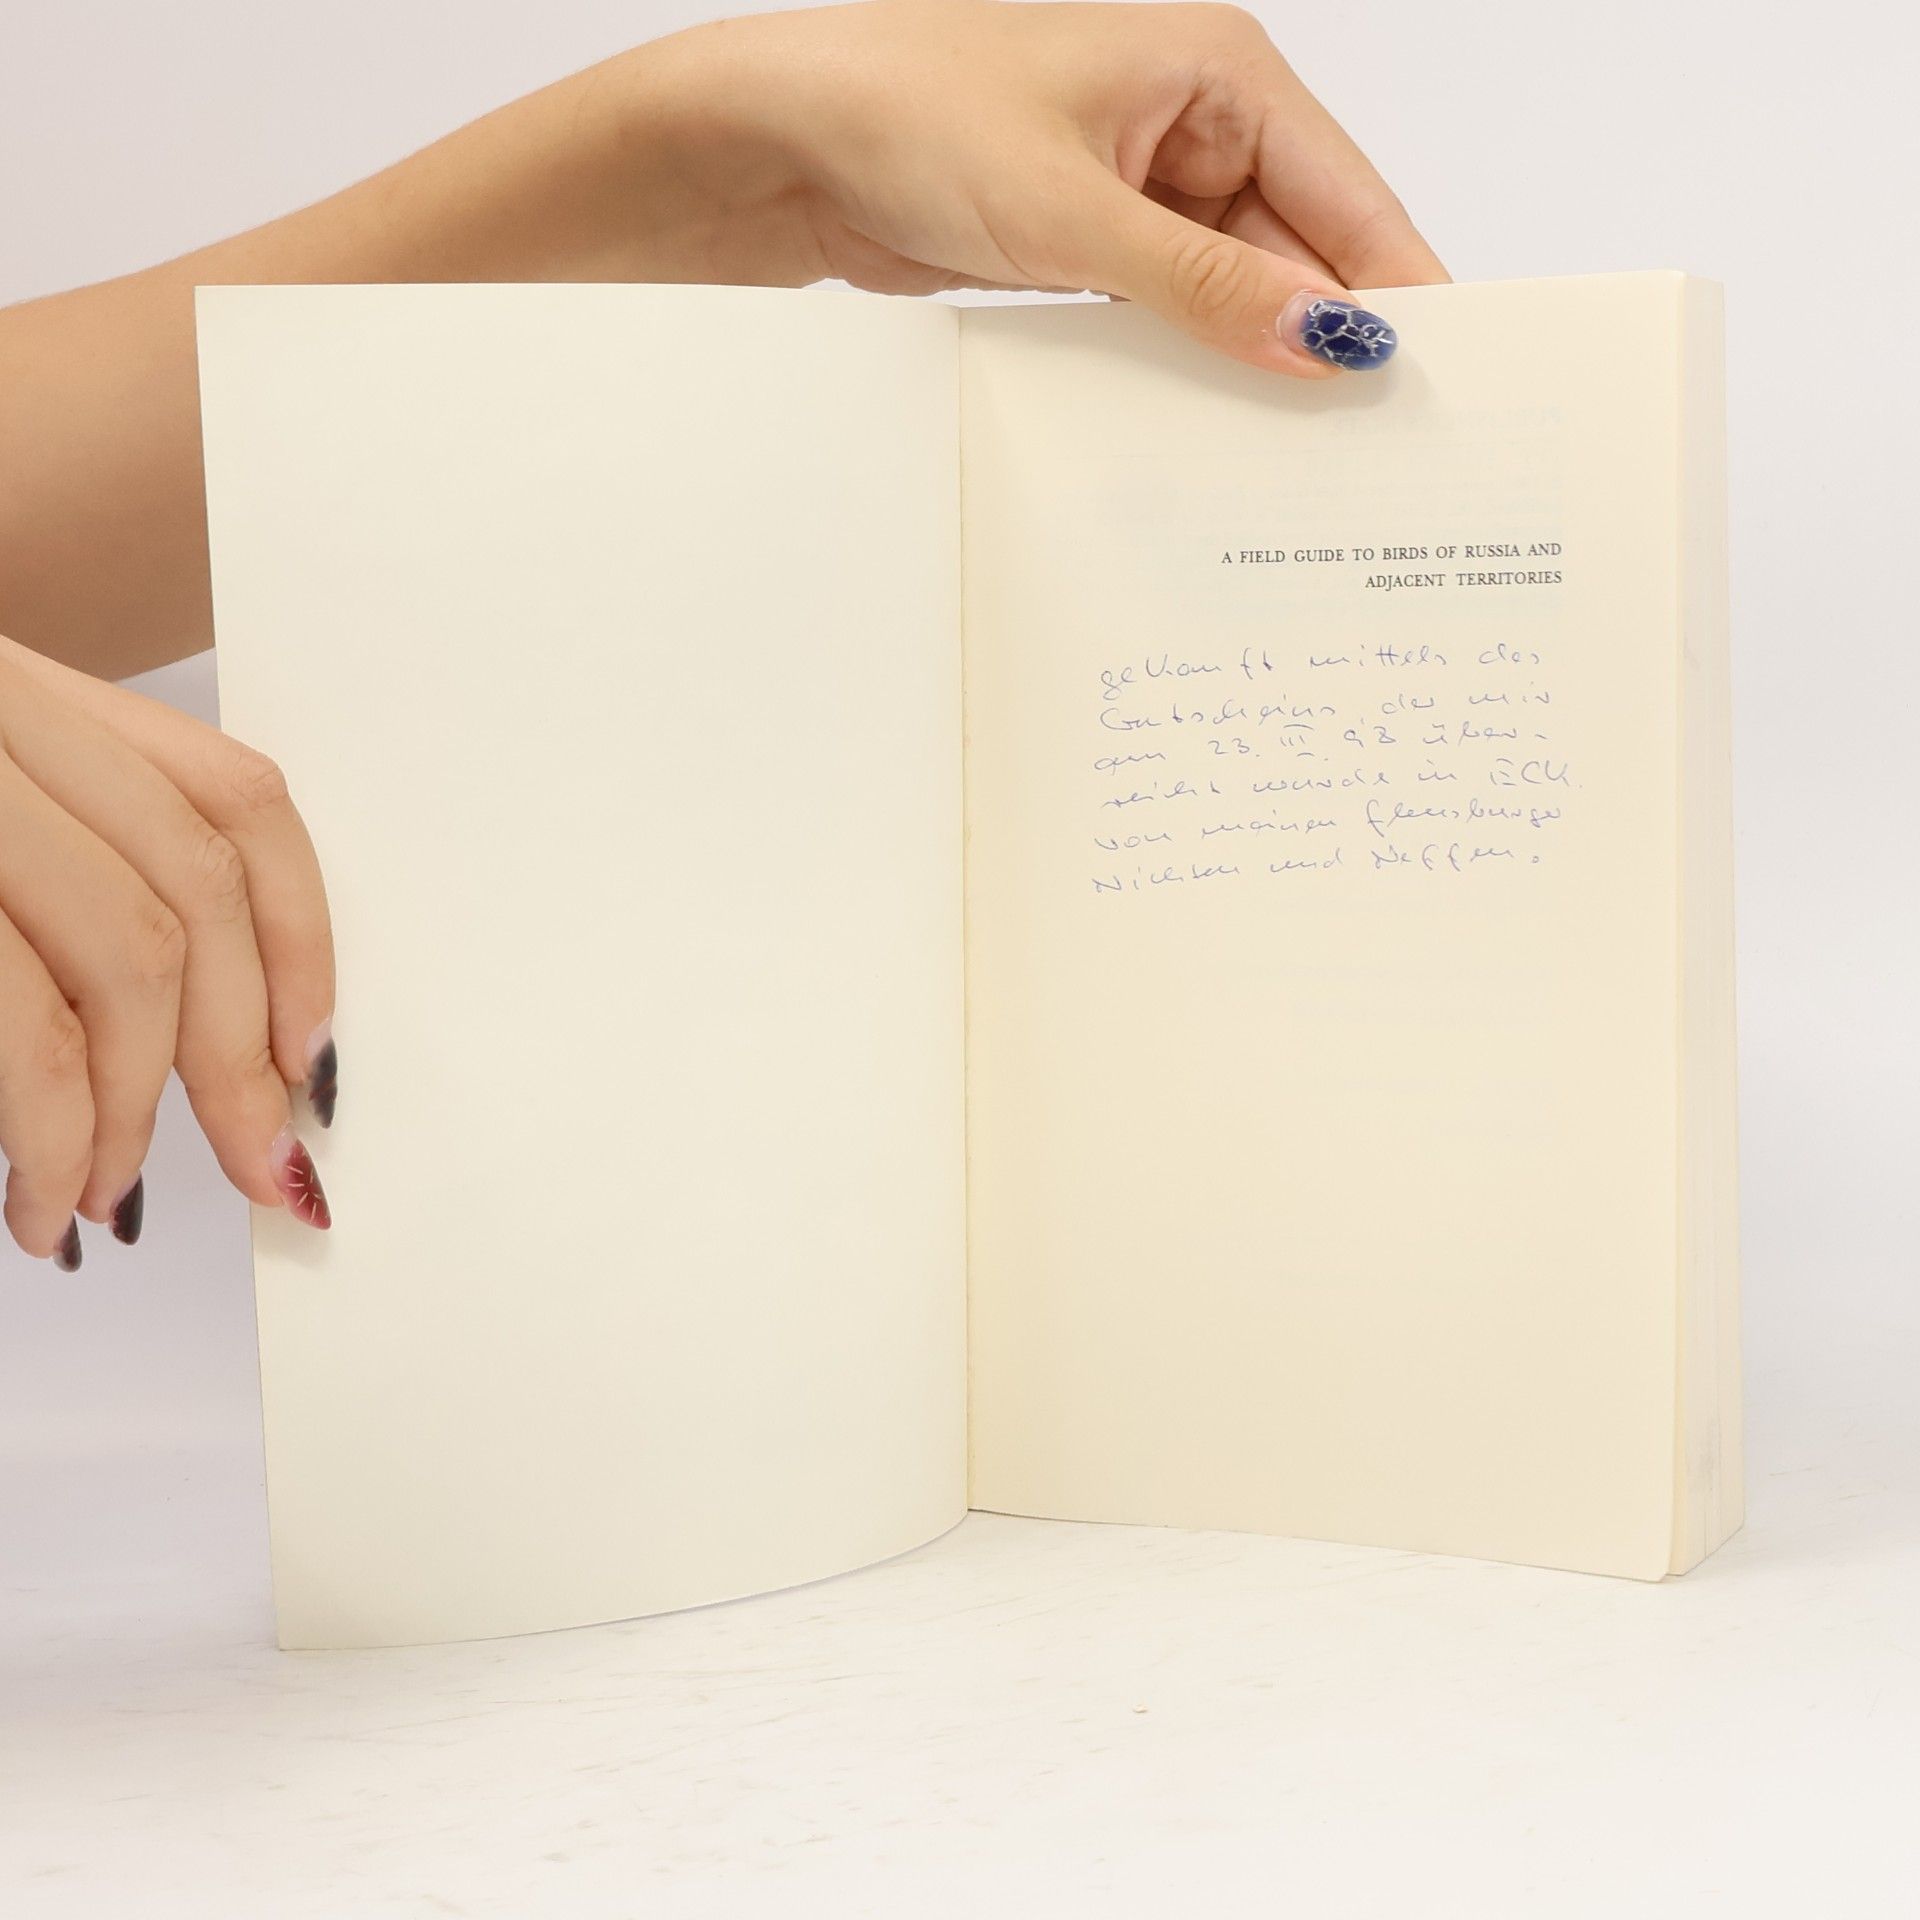 A FIELD GUIDE TO BIRDS OF RUSSIA AND
ADJACENT TERRITORIES
gekauft mittels des
Gutscheins, der mir
am 23. III. 98 über-
reicht wurde in ECK.
von meinen flensburger
Nichten und Neffen.